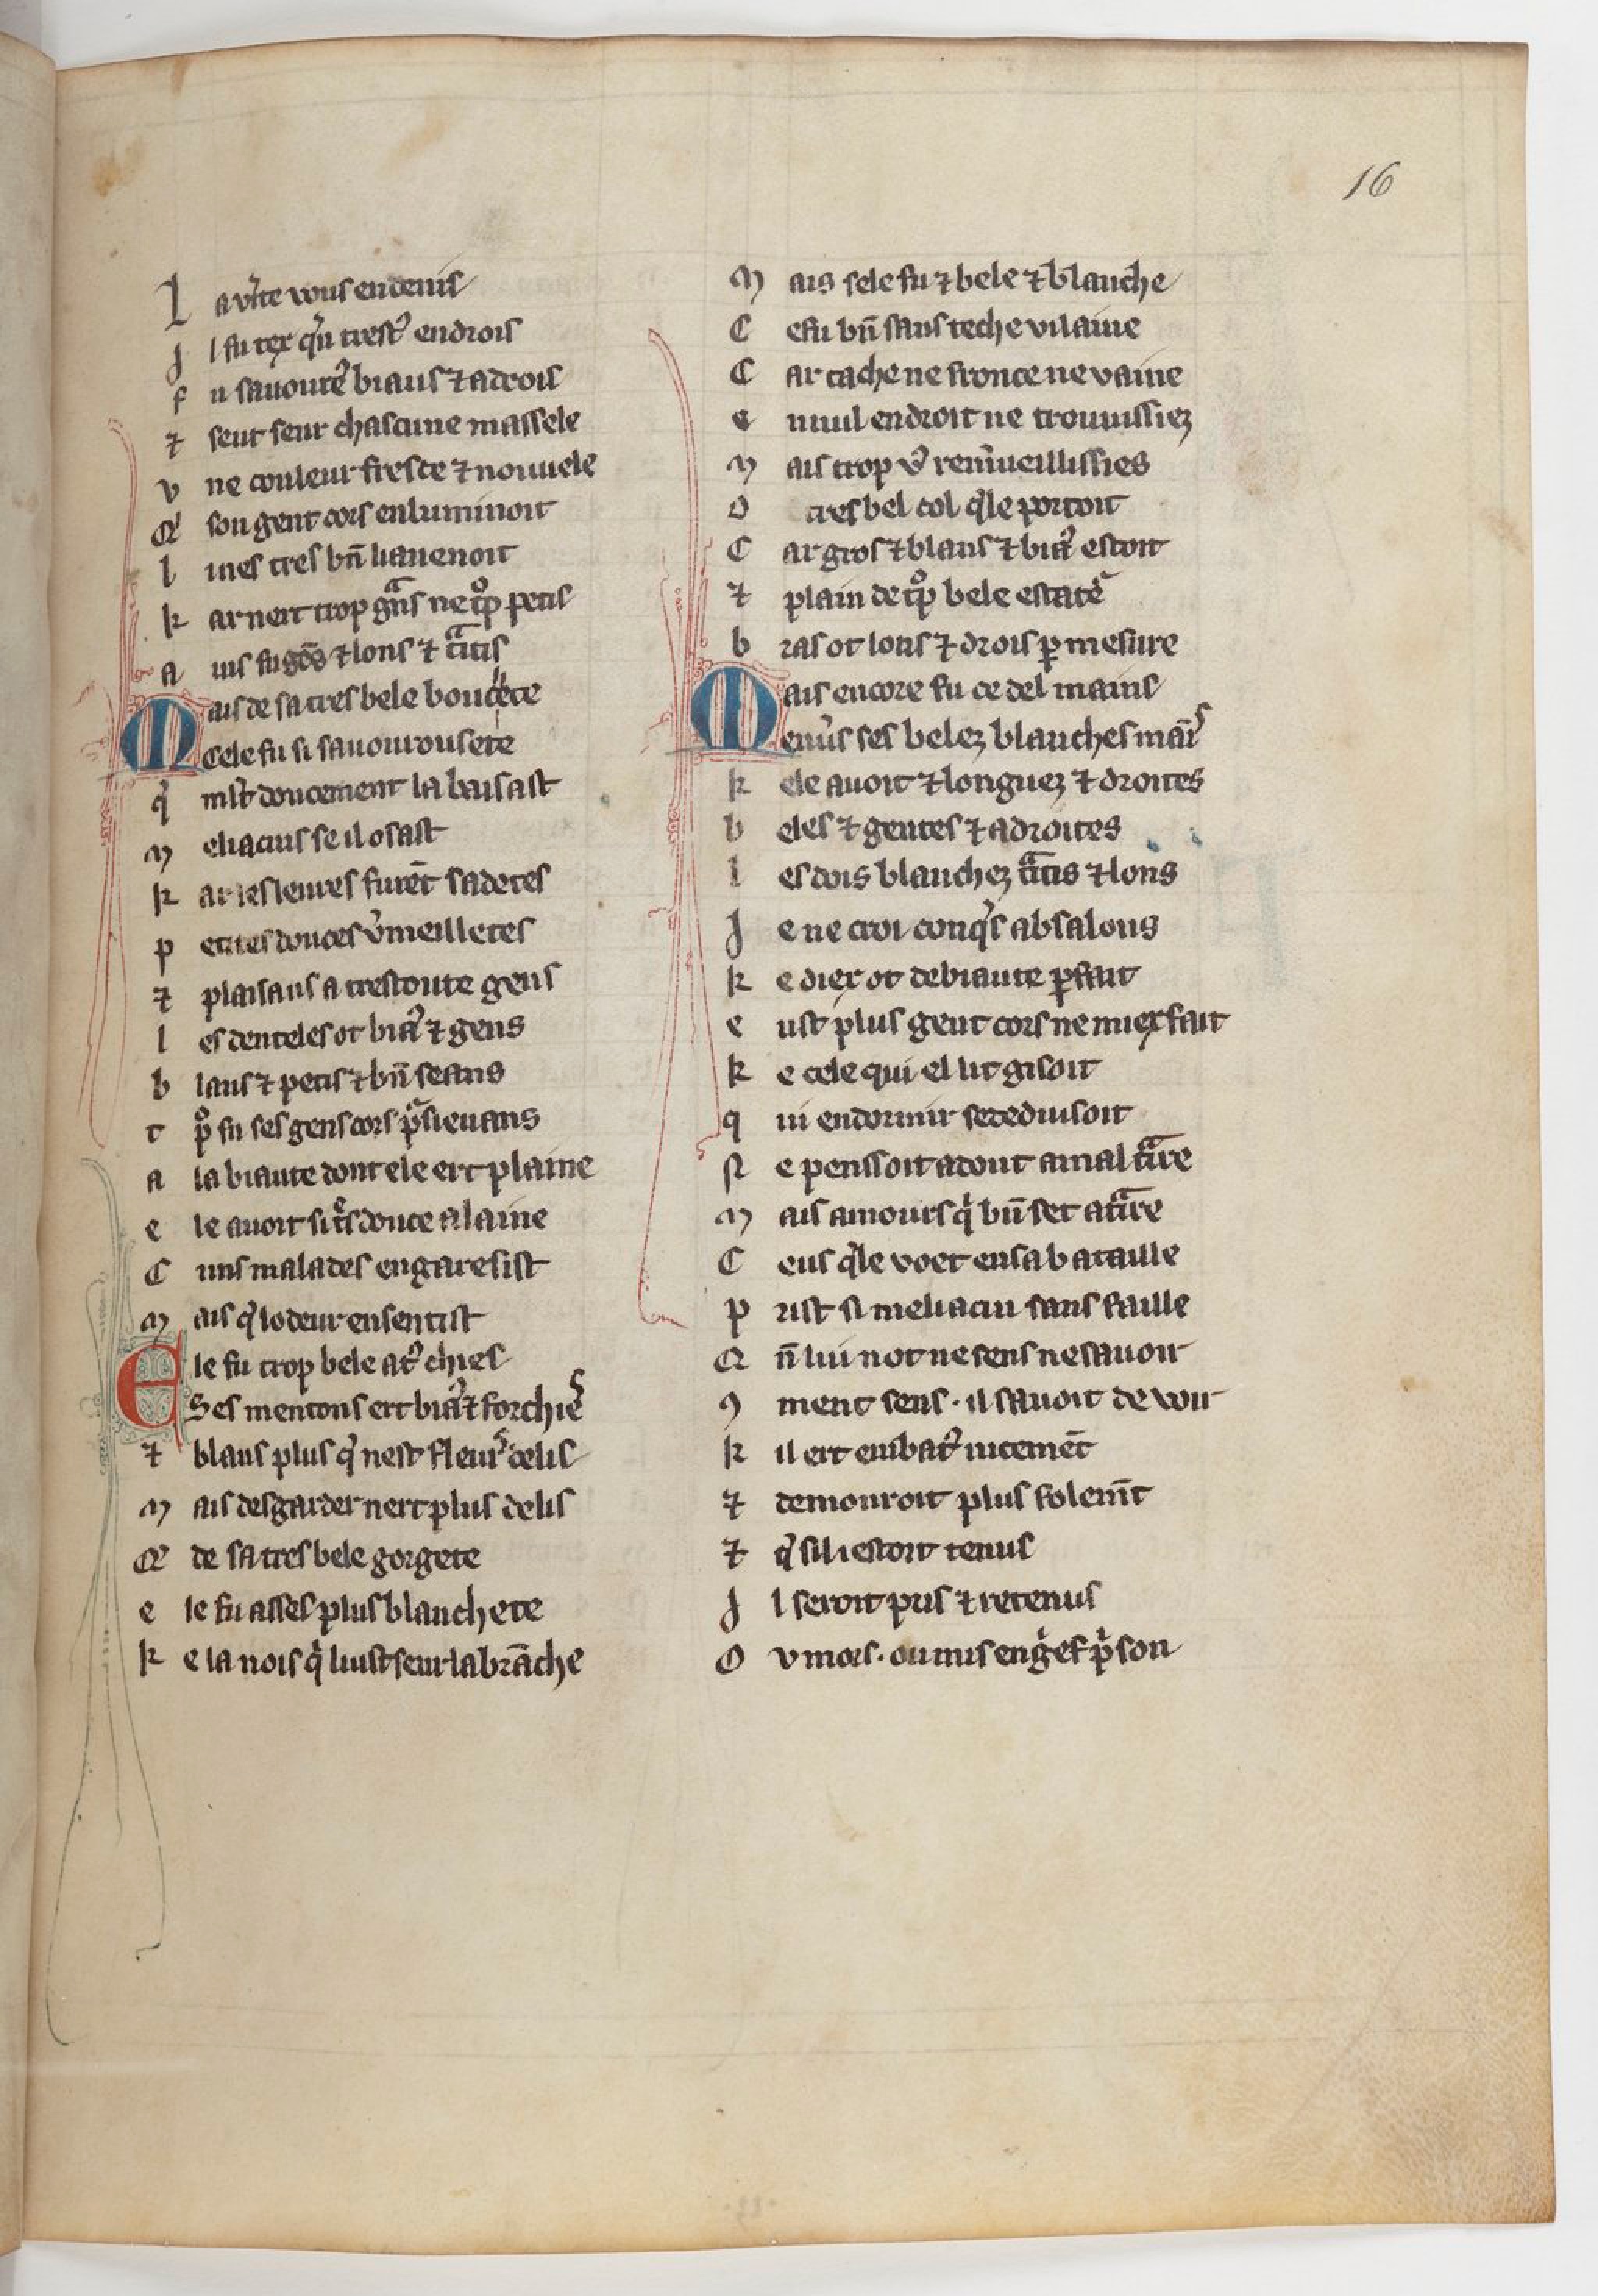 16
L a vͥte vous en deuis
J l fu tex qͥu trest᷑ endrois
f u sauoure᷑ biaus ⁊ adrois
⁊ seur seur chascune massele
v ne couleur fresce ⁊ nouuele
Q̾ son gent cors enluminoit
l i nes tres bn̄ li auenoit
k ar nert trop gᷓns ne tͦp petis
a uis fu gōs ⁊ lons ⁊ tᷓitis
M ais de sa tres bele boucete
Cele fu si sauourousete
q̾ mlt doucement la baisast
m eliacins se il osast
k ar ses leures furēt sadetes
p etites douces v̾meilletes
⁊ plaisans a trestoute gens
l es denteles ot bia᷑ ⁊ gens
b lans ⁊ petis ⁊ bn̄ seans
t ͦp fu ses gens cors pͣsieuans
a la biaute dont ele ert plaine
e le auoit si tͤs douce alaine
C uns malades en garesist
m ais q̾ lodeur en sentist
E le fu trop bele at᷑ chies
Ses mentons ert bia᷑ ⁊ forchiēs
⁊ blans plus q̾ nest fleurͬ de lis
m ais desgarder nert plus delis
Q̾ de sa tres bele gorgete
e le fu asses plus blanchete
k e la nois qͥ luist seur la brāche
M ais sele fu ⁊ bele ⁊ blanche
C e fu bn̄ sans teche vilaine
C ar tache ne fronce ne vaine
e n nul endroit ne trouuissiez
m ais trop v᷑ remͥueillissies
O tres bel col q̾le portoit
C ar gros ⁊ blans ⁊ bia᷑ estoit
⁊ plain de tͦp bele estatͥe
b ras ot lons ⁊ drois ꝑ mesure
M ais encore fu ce del mains
Enu᷑s ses belez blanches māis
k ele auoit ⁊ longuez ⁊ droites
b eles ⁊ gentes ⁊ adroites
l es dois blanchez tᷓitis ⁊ lons
J e ne croi conq̾s absalons
k e diex ot de biaute ꝑfait
e ust plus gent cors ne miex fait
k e cele qui el lit gisoit
q ui endormir se deduisoit
N e penssoit adont a mal tᷓire
m ais amours qͥ bn̄ set atᷓire
C eus q̾le voet en sa bataille
p rist si meliacin sans faille
Q n̄ lui not ne sens ne sauoir
9 ment sens · il sauoit de voir
k il ert embat᷑ nicemēt
⁊ demouroit plus folemn̄t
⁊ q̾ sil i estoit tenus
J l seroit pris ⁊ retenus
O v mors · ou mis en gͥef pͥson